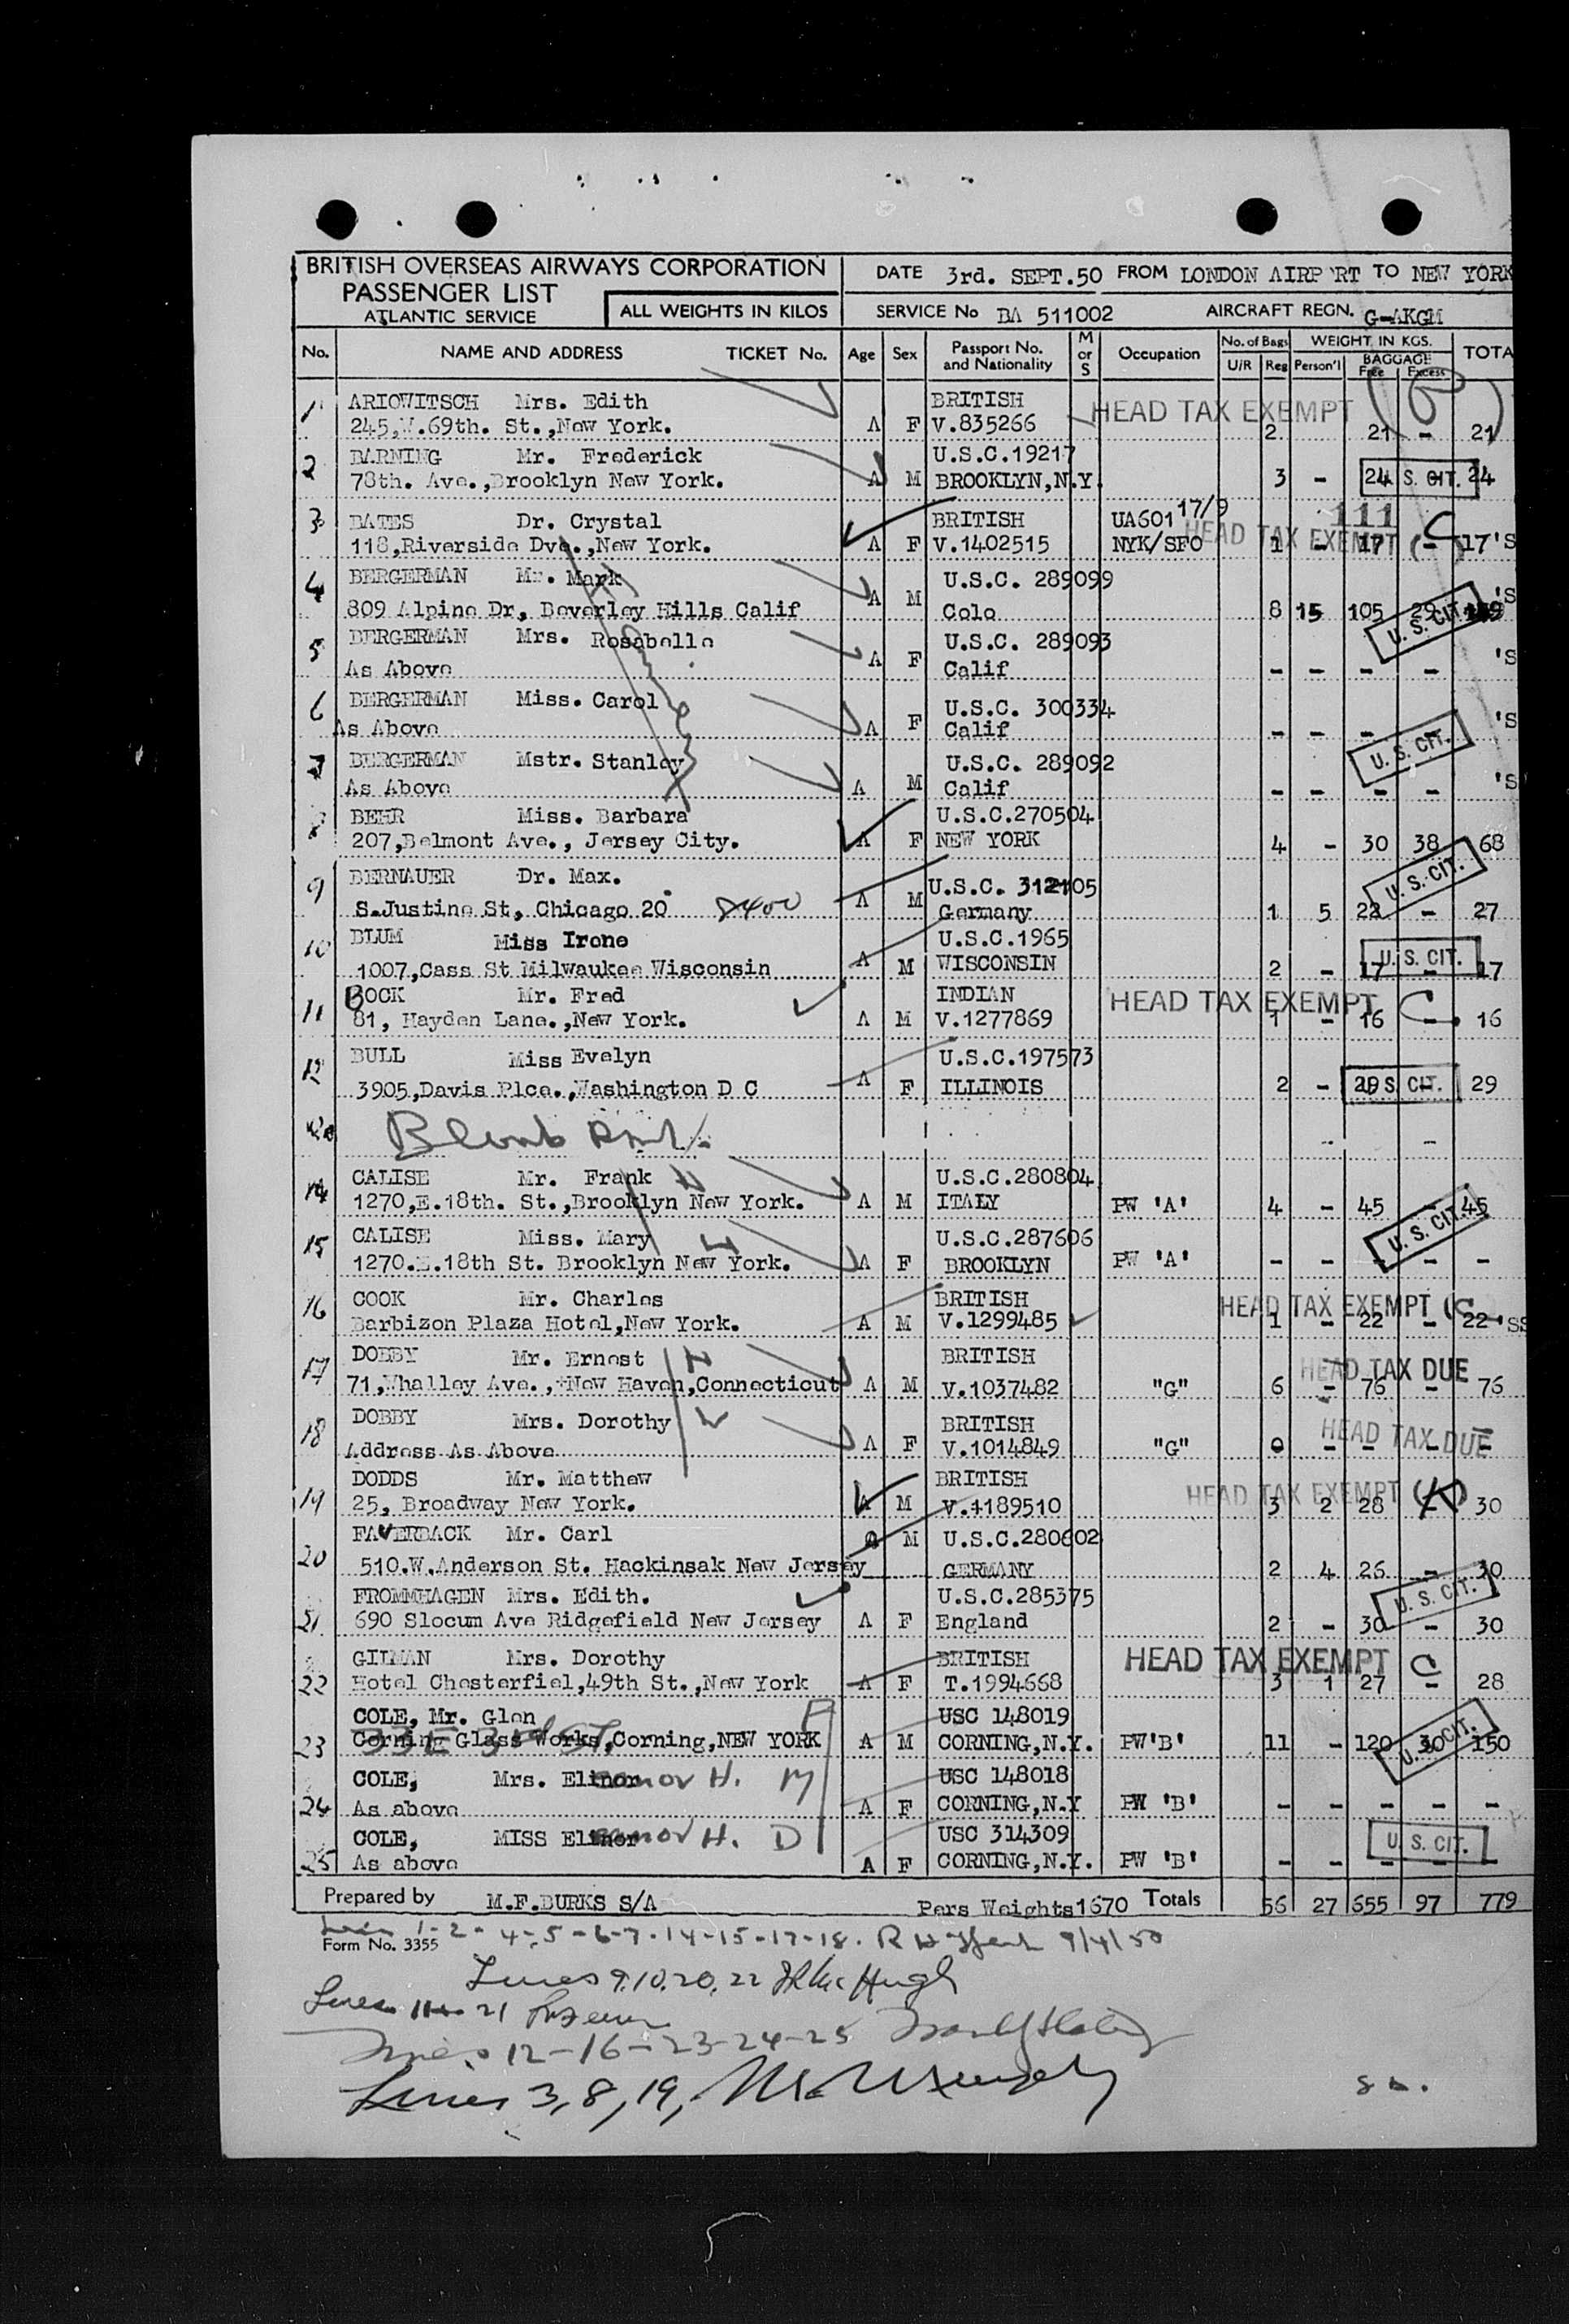 BRITISH OVERSEAS AIRWAYS CORPORATION
PASSENGER LIST
ATLANTIC SERVICE
ALL WEIGHTS IN KILOS
DATE 3rd. SEPT.50 FROM LONDON AIRP RT TO NEW YORK
SERVICE No BA 511002 AIRCRAFT REGN. G-AKGM
No. NAME AND ADDRESS TICKET No. Age Sex Passport No. and Nationality M or S Occupation No. of Bags U/R Reg WEIGHT IN KGS. Person'l BAGGAGE Free Excess TOTA
1 ARIOWITSCH Mrs. Edith BRITISH HEAD TAX EXEMPT
245,W.69th. St.,New York. A F V.835266 2 21 - 21
2 BARNING Mr. Frederick U.S.C.19217
78th. Ave.,Brooklyn New York. A M BROOKLYN,N.Y. 3 - 24 S. CIT. 24
3 BATES Dr. Crystal BRITISH UA601 17/9 111
118,Riverside Dve.,New York. A F V.1402515 NYK/SFO HEAD TAX EXEMPT 1 - 17 - C 17 'S
4 BERGERMAN Mr. Mark U.S.C. 289099
809 Alpine Dr, Beverley Hills Calif A M Colo 8 15 105 29 U. S. CIT. 'S
5 BERGERMAN Mrs. Rosabelle U.S.C. 289093
As Above A F Calif - - - - 'S
6 BERGERMAN Miss. Carol U.S.C. 300334
As Above A F Calif - - - - U. S. CIT. 'S
7 BERGERMAN Mstr. Stanley U.S.C. 289092
As Above A M Calif - - - - 'S
8 BEHR Miss. Barbara U.S.C.270504
207,Belmont Ave., Jersey City. A F NEW YORK 4 - 30 38 68
9 BERNAUER Dr. Max. U.S.C. 312105 U. S. CIT.
S.Justine St, Chicago 20 8400 A M Germany 1 5 22 - 27
10 BLUM Miss Irene U.S.C.1965
1007,Cass St Milwaukee Wisconsin A M WISCONSIN 2 - 17 U. S. CIT. 17
11 BOCK Mr. Fred INDIAN HEAD TAX EXEMPT C
81, Hayden Lane.,New York. A M V.1277869 1 - 16 - 16
12 BULL Miss Evelyn U.S.C.197573
3905,Davis Plce.,Washington D C A F ILLINOIS 2 - 29 S. CIT. 29
14 CALISE Mr. Frank U.S.C.280804
1270,E.18th. St.,Brooklyn New York. A M ITALY PW 'A' 4 - 45 U. S. CIT. 45
15 CALISE Miss. Mary U.S.C.287606
1270.E.18th St. Brooklyn New York. A F BROOKLYN PW 'A' - - - - -
16 COOK Mr. Charles BRITISH HEAD TAX EXEMPT C
Barbizon Plaza Hotel,New York. A M V.1299485 1 - 22 - 22 'SS
17 DOBBY Mr. Ernest BRITISH HEAD TAX DUE
71,Whalley Ave.,New Haven,Connecticut A M V.1037482 "G" 6 - 76 - 76
18 DOBBY Mrs. Dorothy BRITISH HEAD TAX DUE
Address As Above A F V.1014849 "G" 0 - - - -
19 DODDS Mr. Matthew BRITISH HEAD TAX EXEMPT
25, Broadway New York. A M V.1189510 3 2 28 - 30
20 FAVERBACK Mr. Carl A M U.S.C.280602
510.W.Anderson St. Hackinsak New Jersey GERMANY 2 4 26 - 30
FROMMHAGEN Mrs. Edith. U.S.C.285375 U. S. CIT.
21 690 Slocum Ave Ridgefield New Jersey A F England 2 - 30 - 30
GILMAN Mrs. Dorothy BRITISH HEAD TAX EXEMPT C
22 Hotel Chesterfiel,49th St.,New York A F T.1994668 3 1 27 - 28
COLE, Mr. Glen USC 148019
33 E 3rd St.
23 Corning Glass Works,Corning,NEW YORK A M CORNING,N.Y. PW'B' 11 - 120 30 U. S. CIT. 150
COLE, Mrs. Elinor H. M USC 148018
24 As above A F CORNING,N.Y PW 'B' - - - - -
COLE, MISS Elinor H. D USC 314309 U. S. CIT.
25 As above A F CORNING,N.Y. PW 'B' - - - - -
Prepared by M.F.BURKS S/A Pers Weights 1670 Totals 56 27 655 97 779
1-2-4-5-6-7-14-15-17-18. 9/4/50
Form No. 3355
Lines 9.10.20.22 McHugh
Lines 11 21
Lines 12-16-23-24-25
Lines 3,8,19,